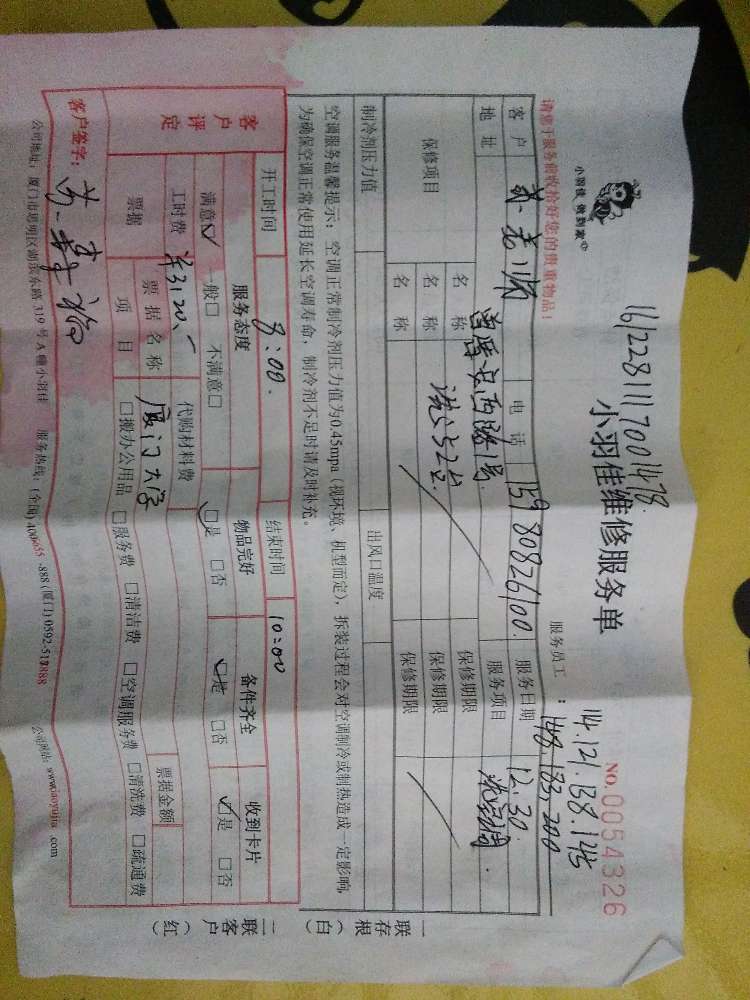 1612281117001478
小羽佳 做到家
小羽佳维修服务单
NO.0054326
请您于服务前收拾好您的贵重物品！
服务员工：14.121.138.145
148 183, 200
客户 电话 15980826100 服务日期 12.30
地址 服务项目 洗空调
保修项目 名称 保修期限
名称 保修期限
名称 保修期限
制冷剂压力值 出风口温度
空调服务温馨提示：空调正常制冷剂压力值为0.45mpa（视环境、机型而定），拆装过程会对空调制冷或制热造成一定影响，
为确保空调正常使用延长空调寿命，制冷剂不足时请及时补充。
开工时间 8:00. 结束时间 10:00
客户评定 服务态度 物品完好 备件齐全 收到卡片
满意☑ 一般□ 不满意□ ☑是 □否 ☑是 □否 ☑是 □否
工时费 ¥3120、- 代购材料费
票据 票据名称 厦门大学 票据金额
项目 □搬办公用品 □服务费 □清洁费 □空调服务费 □清洗费 □疏通费
客户签字：
公司地址：厦门市思明区湖滨东路319号A幢小羽佳 服务热线：(全国)400 -888(厦门)0592-5 888 公司网站：www.iaoyujia .com
一联存根（白）
二联客户（红）